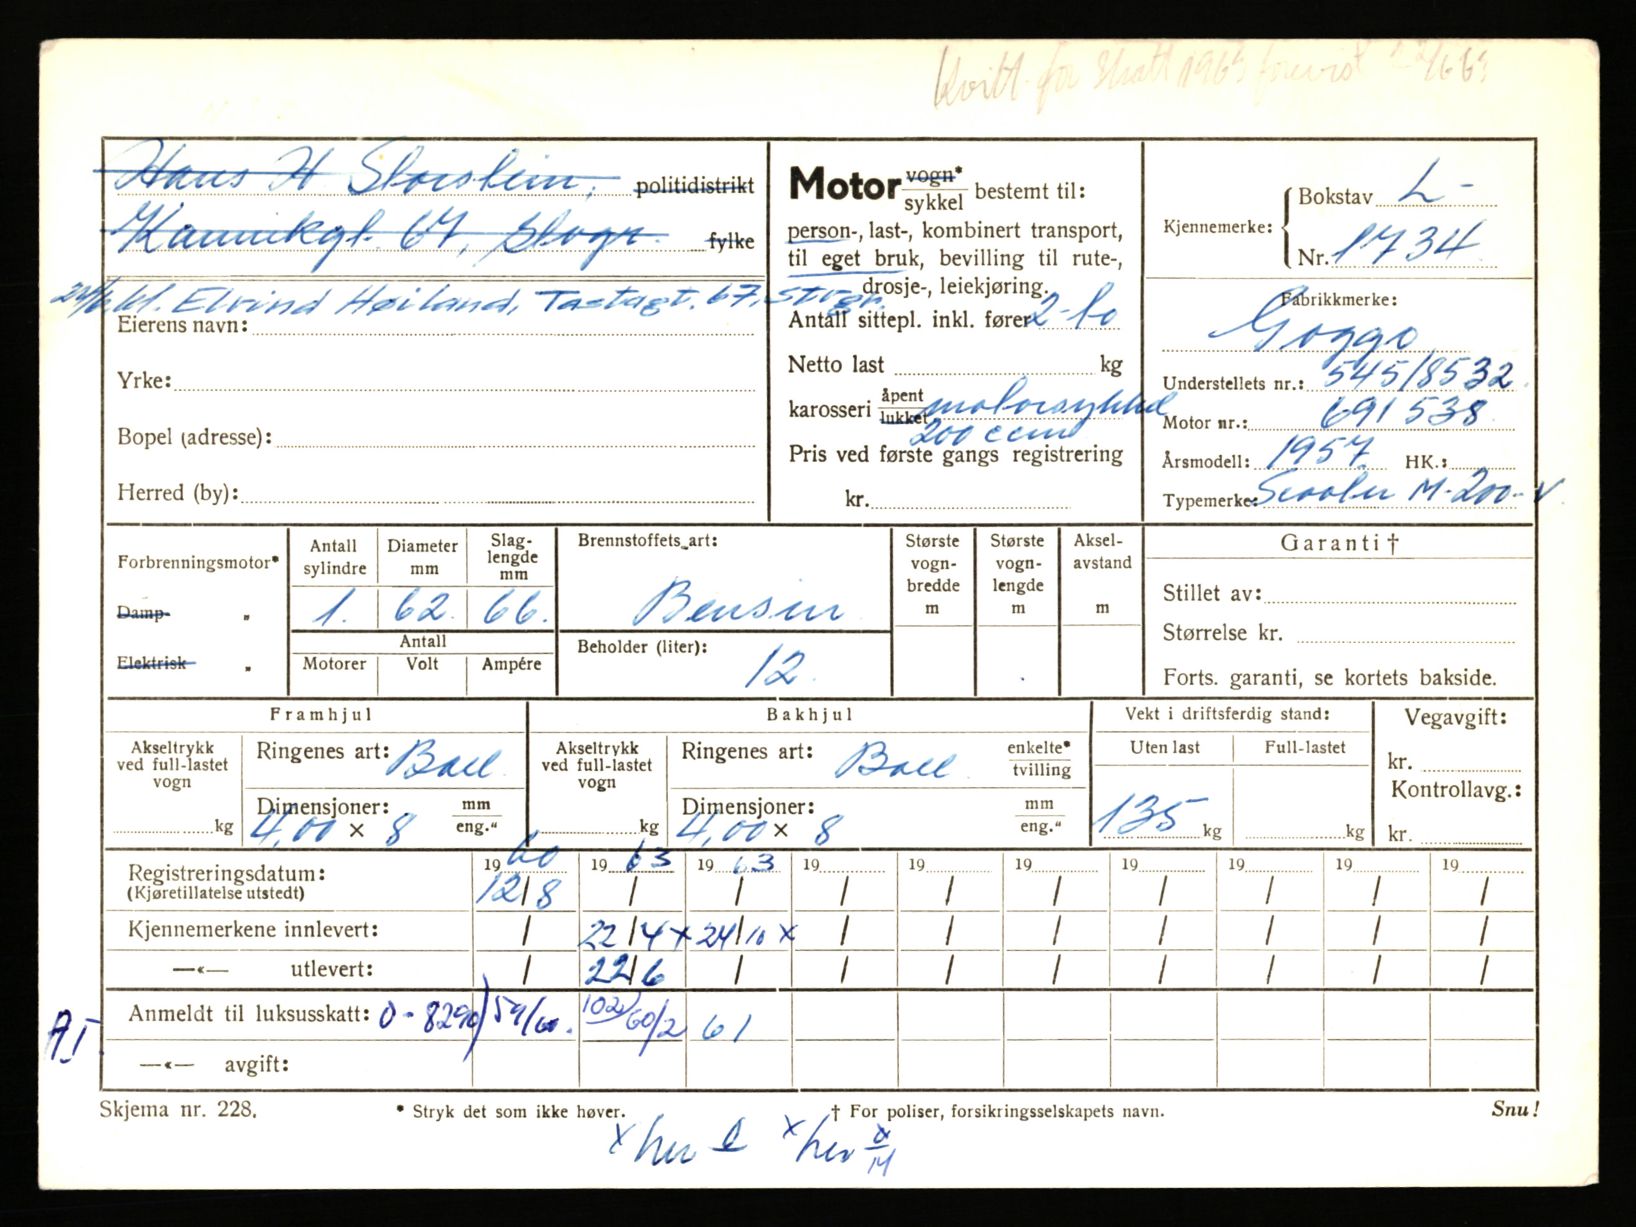 Kvitt. for skatt 1963 forevist 22/6 63
Hans H. Storstein, politidistrikt
Kannikgt. 67, Stvgr. fylke
Elvind Høiland, Tastagt. 67, Stvgr.
Eierens navn:
Yrke:
Bopel (adresse):
Herred (by):
Motor vogn* sykkel bestemt til:
person-, last-, kombinert transport,
til eget bruk, bevilling til rute-,
drosje-, leiekjøring.
Antall sittepl. inkl. fører 2-to
Netto last kg
karosseri åpent lukket motorsykkel
200 ccm
Pris ved første gangs registrering
kr.
Kjennemerke: Bokstav L-
Nr. 1734
Fabrikkmerke:
Goggo
Understellets nr.: 545/8532
Motor nr.: 691538
Årsmodell: 1957 HK.:
Typemerke: Scooter M-200-V
Forbrenningsmotor*
Damp- „
Elektrisk „
Antall sylindre
1.
Diameter mm
62.
Slag-lengde mm
66.
Antall
Motorer Volt Ampére
Brennstoffets art:
Bensin
Beholder (liter):
12.
Største vogn-bredde m
Største vogn-lengde m
Aksel-avstand m
Garanti †
Stillet av:
Størrelse kr.
Forts. garanti, se kortets bakside.
Framhjul
Akseltrykk ved full-lastet vogn
kg
Ringenes art: Ball
Dimensjoner: mm eng."
4,00 x 8
Bakhjul
Akseltrykk ved full-lastet vogn
kg
Ringenes art: Ball enkelte* tvilling
Dimensjoner: mm eng."
4,00 x 8
Vekt i driftsferdig stand:
Uten last Full-lastet
135 kg kg
Vegavgift:
kr.
Kontrollavg.:
kr.
19 60 19 63 19 63 19 19 19 19 19 19 19
Registreringsdatum: 12/8 / / / / / / / / /
(Kjøretillatelse utstedt)
Kjennemerkene innlevert: / 22/4 x 24/10 x / / / / / / /
—«— utlevert: / 22/6 / / / / / / / /
Anmeldt til luksusskatt: 0-8290/59/60. 102/60/2 61
A.J.
—«— avgift:
Skjema nr. 228. * Stryk det som ikke høver. † For poliser, forsikringsselskapets navn. Snu!
x her x her